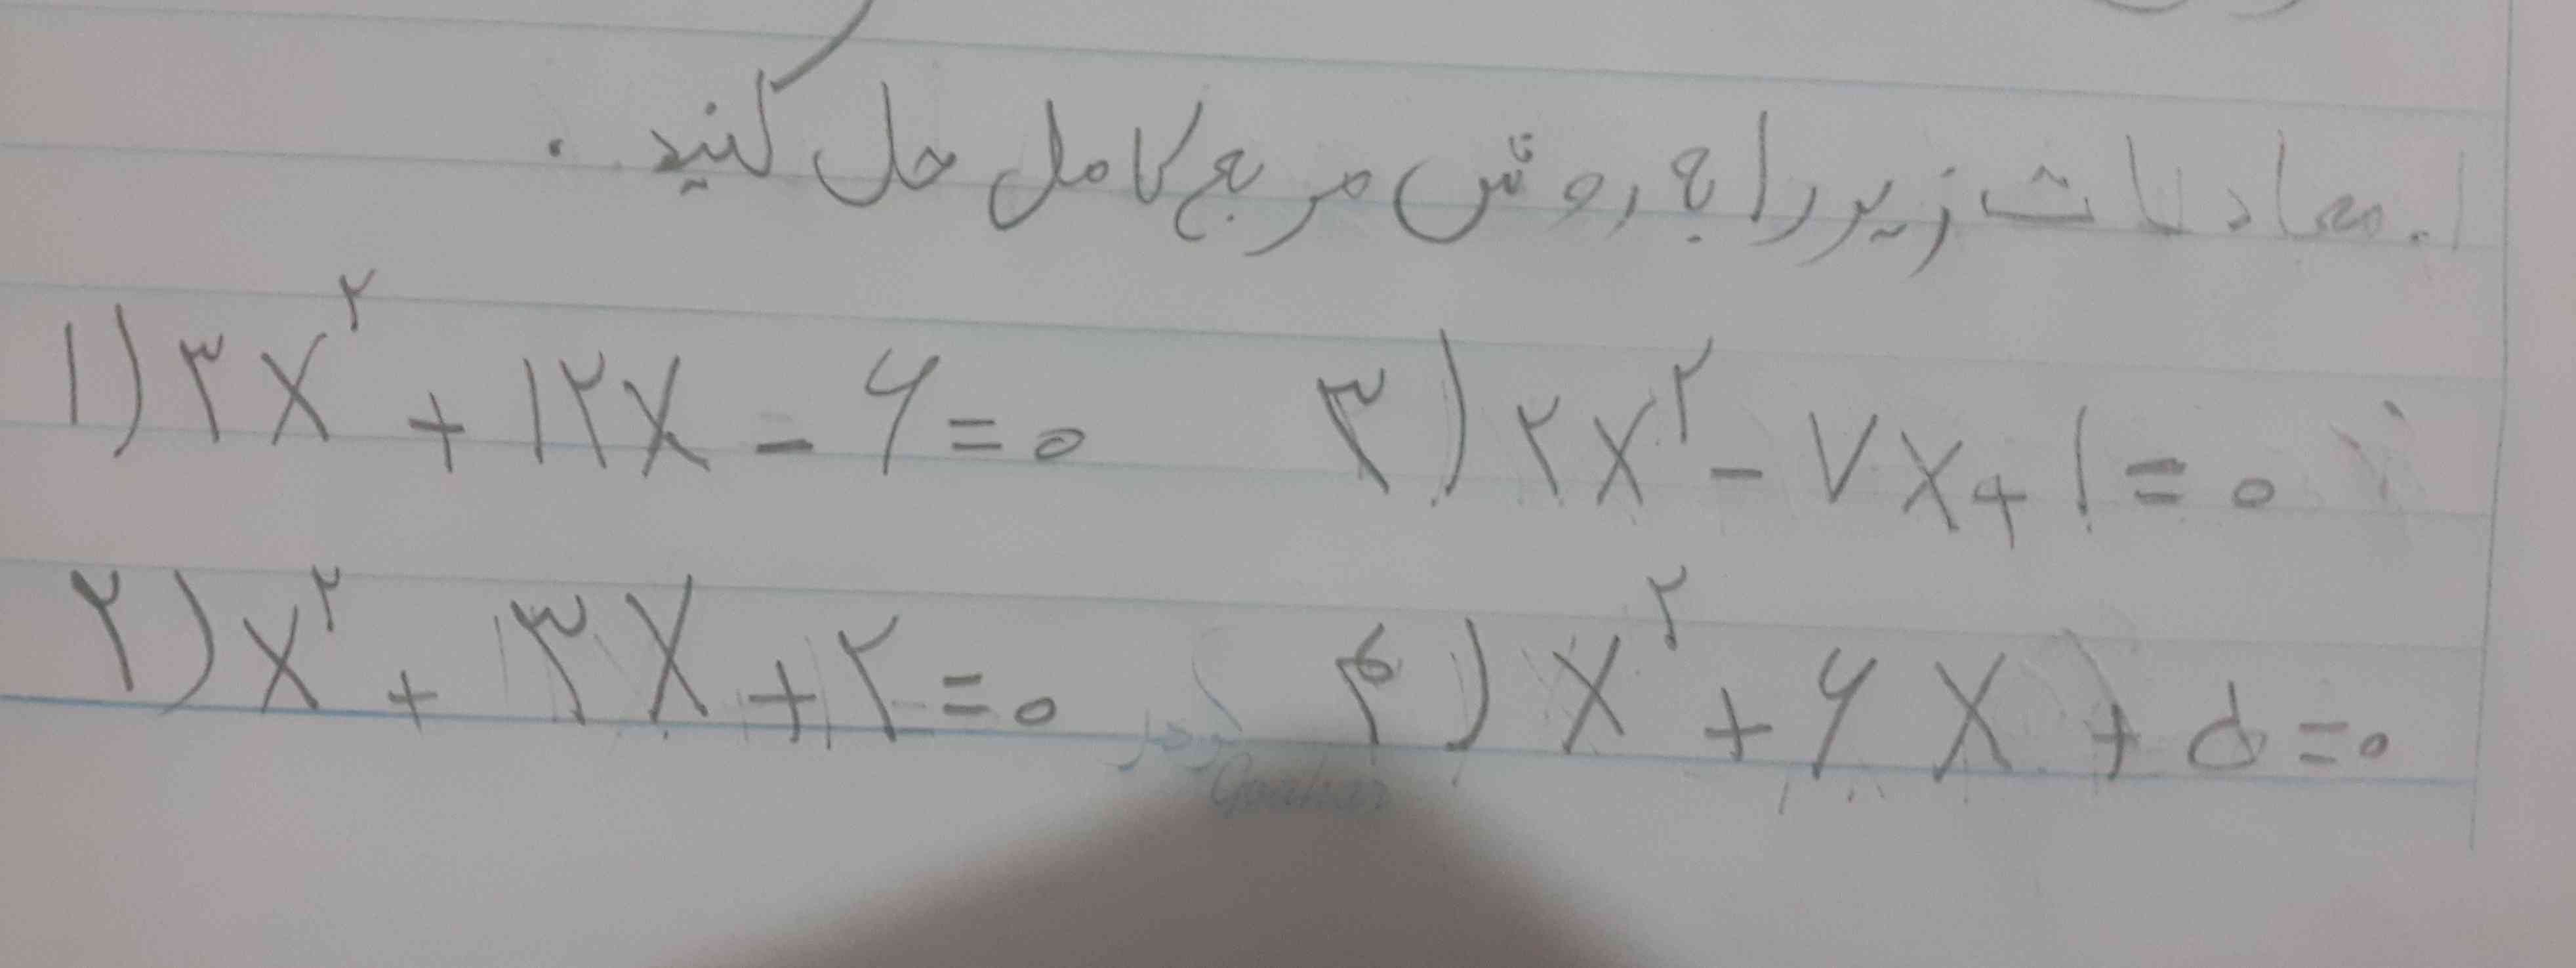 ۱. معادلات زیر را به روش مربع کامل حل کنید.
۱) ۳x^۲ + ۱۲x - ۶ = ۰   ۳) ۲x^۲ - ۷x + ۱ = ۰
۲) x^۲ + ۳x + ۲ = ۰   ۴) x^۲ + ۶x + ۵ = ۰
گوهر
Goohar